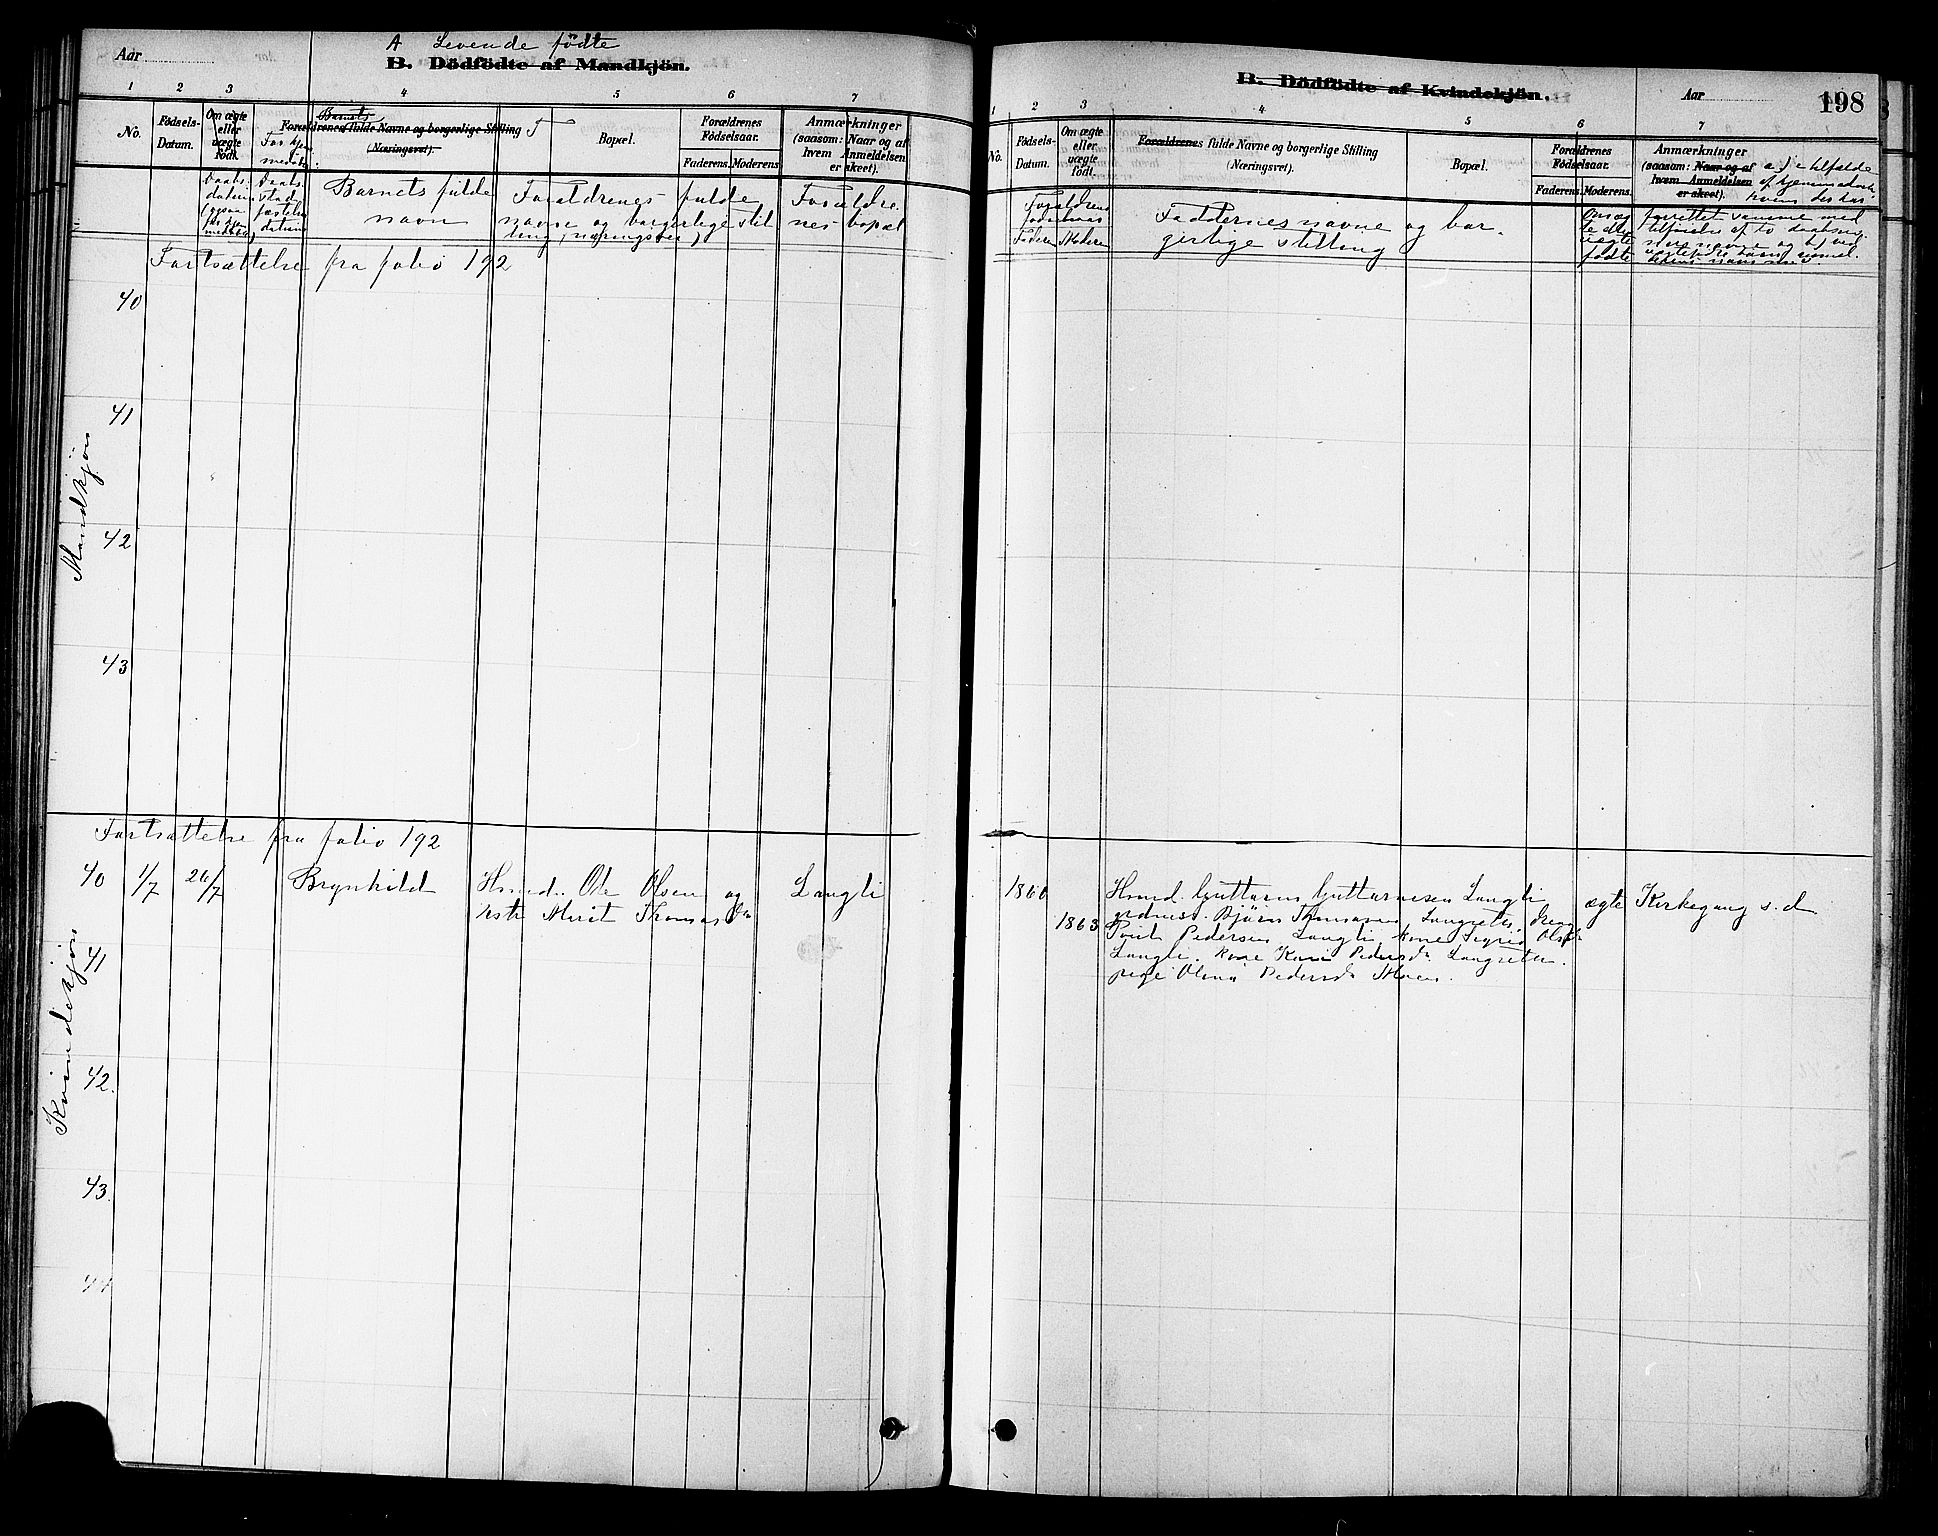 Aar
A Levende fødte
B. Dödfödte af Mandkjön.
1 2 3 4 5 6 7
No.
Födsels-Datum.
Om ægte eller uægte födt.
Barnets
Forældrenes fulde Navne og borgerlige Stilling (Næringsvei).
Bopæl.
Forældrenes Födselsaar.
Faderens. Moderens.
Anmærkninger (saasom: Naar og af hvem Anmeldelsen er skeet).
Daabs-datum
Barnets fulde navn
Forældrenes fulde navne og borgerlige stilling (næringsvei)
Forældrenes bopæl
Fortsættelse fra folio 192
Mandkjøn
40
41
42
43
Fortsættelse fra folio 192
Kvindekjøn
40 1/7 26/7 Brynhild
Ole Olsen og
Merit Thomasdr
Langli
41
42.
43.
44
B. Dödfödte af Kvindekjön.
Aar
198
1 2 3 4 5 6 7
No.
Födsels-Datum.
Om ægte eller uægte födt.
Forældrenes fulde Navne og borgerlige Stilling (Næringsvei).
Bopæl.
Forældrenes Födselsaar.
Faderens. Moderens.
Anmærkninger (saasom: Naar og af hvem Anmeldelsen er skeet).
a) i tilfælde af hjemmedaab
Forældrenes fødselsaar
Faderen Moderen
Faddernes navne og borgerlige stilling
Om ægte eller uægte fødte
forrettet samme med tilføielse af to
1860
1863
Langli
Bjørn Thomasen Langeter, dreng
Pedersen Langli, kone Sigrid Olsdr
Langli. kone Kari Pedersdr Langeter.
pige Olina Pedersdr Moen.
ægte
Kirkegang s. d.